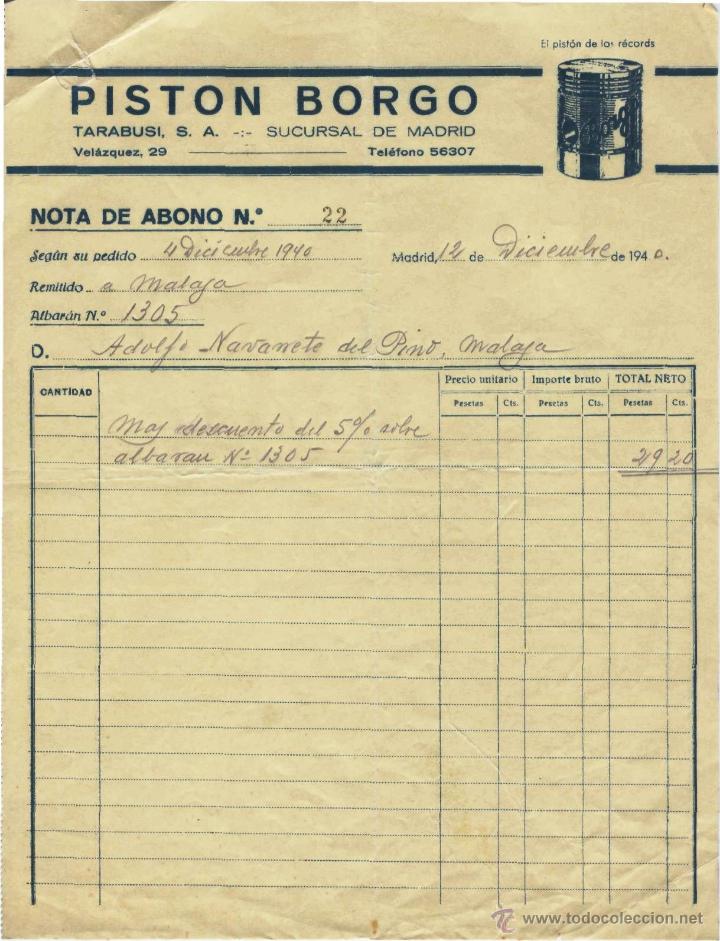 El pistón de los récords
PISTON BORGO
TARABUSI, S. A. -:- SUCURSAL DE MADRID
Velázquez, 29 Teléfono 56307
NOTA DE ABONO N.º 22
Según su pedido 4 Diciembre 1940
Madrid, 12 de Diciembre de 1940.
Remitido a Malaga
Albarán N.º 1305
D. Adolfo Navarrete del Pino, Malaga
CANTIDAD Precio unitario Importe bruto TOTAL NETO
Pesetas Cts. Pesetas Cts. Pesetas Cts.
Mas descuento del 5% sobre
albaran Nº 1305 29 20
www.todocoleccion.net